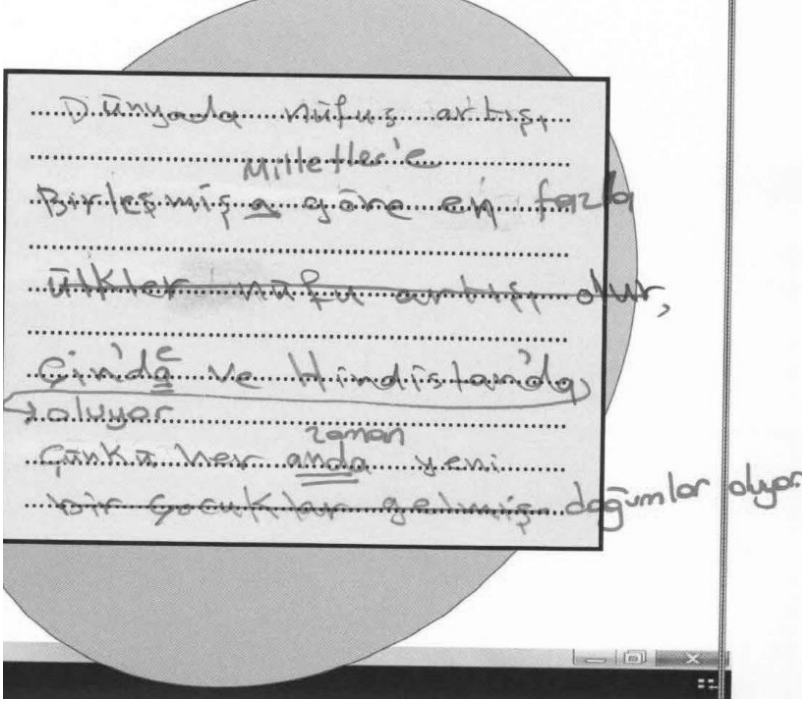 Dünyada nüfuş artışı
Milletler'e
Birleşmiş a göre en fazla
ülkler nüfu artışı olur,
Çin'da e ve Hindistan'da
oluyor
zaman
Çünkü her anda yeni
bir çocuklar gelmiş doğumlar oluyor